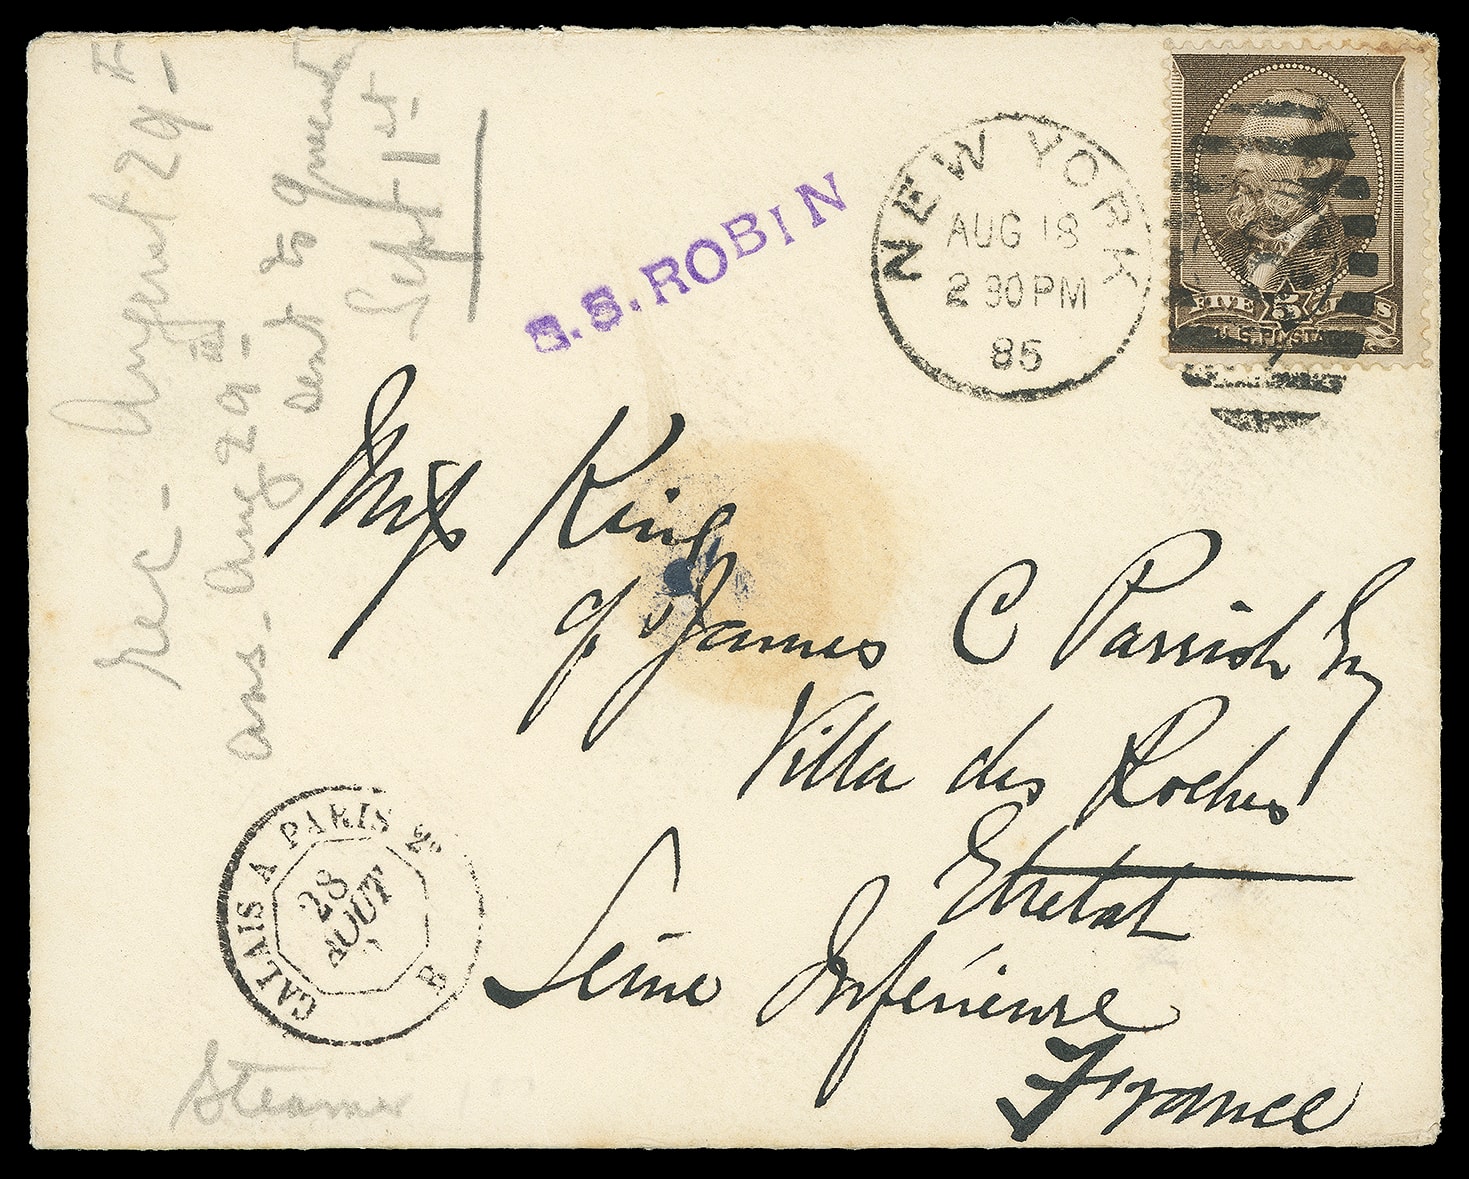 NEW YORK
AUG 18
2 30 PM
85
FIVE 5 CENTS
S.S. ROBIN
Miss King
of James C Parrish Esq
Villa des Roches
Etretat
Seine Inférieure
France
Rec - August 29th
ans - Aug 29th
sent to
Sept 1st
CALAIS A PARIS 2º
28
AOUT
B
Steamer